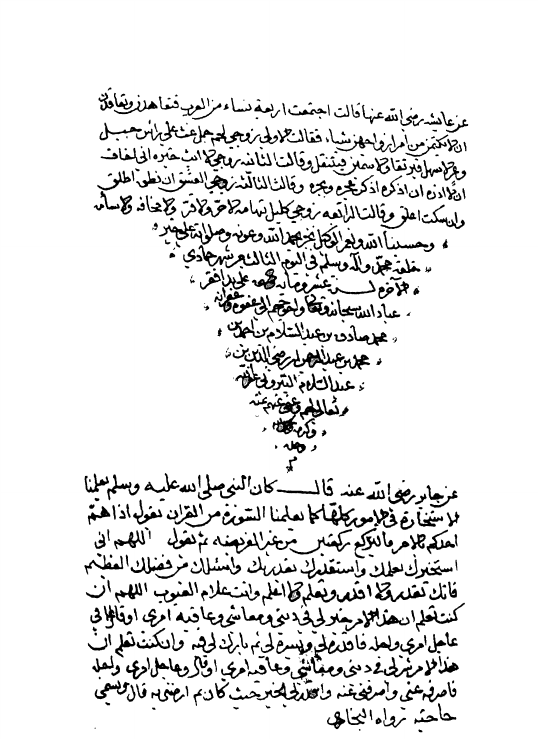 عن عائشه رضي الله عنها قالت اجتمعت اربعه نساء من العرب فتعاهدن وتعاقدن
ان لا يكتمن من امر ازواجهن شيا، فقالت الاولى زوجي لحم جمل غث على رأس جبل
وعر لا سهل فيرتقا ولا سمين فينتقل وقالت الثانيه زوجي لا ابث خبره اني اخاف
ان لا اذره ان اذكره اذكر عجره وبجره وقالت الثالثه زوجي العشنق ان نطق اطلق
وان سكت اعلق وقالت الرابعه زوجي كليل تهامه لا حر ولا قر ولا مخافه ولا سآمه
وحسبنا الله ونعم الوكيل بحمد الله وعونه وصلى الله على خير
خلقه محمد وآله وسلم في اليوم الثالث من شهر جمادي
الآخره سنة عشر ومايه على يد افقر
عباد الله سبحانه وتعالى واحوجهم الى عفوه وغفرانه
محمد صادق بن عبد السلام بن احمد بن
محمد بن عبد الرحمن رضي الدين بن
عبد السلام
تعالى عنه
عن جابر رضي الله عنه قال كان النبي صلى الله عليه وسلم يعلمنا
الاستخارة في الامور كلها كما يعلمنا السورة من القران يقول اذا هم
احدكم بالامر فاليركع ركعتين من غير الفريضه ثم يقول اللهم اني
استخيرك بعلمك واستقدرك بقدرتك واسئلك من فضلك العظيم
فانك تقدر ولا اقدر وتعلم ولا اعلم وانت علام الغيوب اللهم ان
كنت تعلم ان هذا الامر خير لي في ديني ومعاشي وعاقبه امري او قال في
عاجل امري واجله فاقدره لي ويسره لي ثم بارك لي فيه وان كنت تعلم ان
هذا الامر شر لي في ديني ومعاشي وعاقبه امري او قال وعاجل امري واجله
فاصرفه عني واصرفني عنه واقدر لي الخير حيث كان ثم ارضني به قال ويسمي
حاجته رواه البخاري